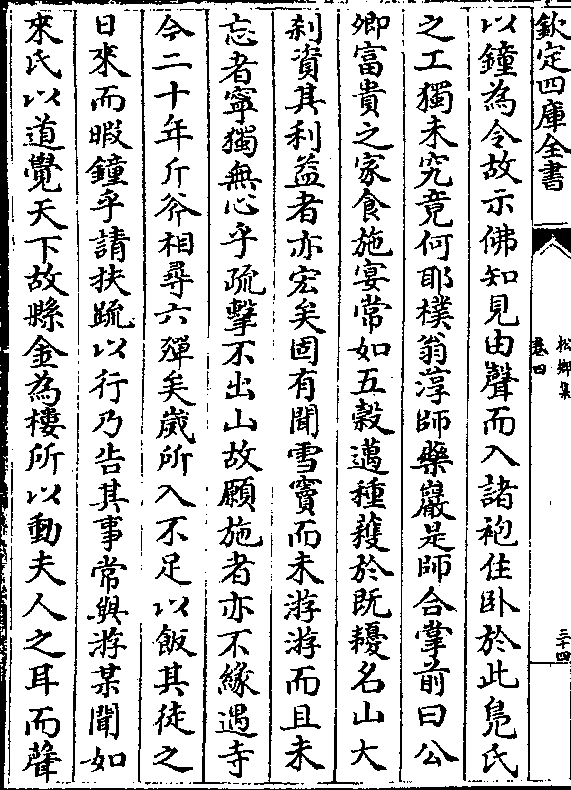 欽定四庫全書
松鄉集
卷四
三十四
以鐘為令故示佛知見由聲而入諸袍住卧於此鳧氏
之工獨未究竟何耶樸翁淳師藥巖是師合掌前曰公
卿富貴之家食施宴常如五穀邁種穫於既耰名山大
剎資其利益者亦宏矣固有聞雪竇而未游游而且未
忘者寧獨無心乎疏擊不出山故願施者亦不緣遇寺
今二十年斤斧相尋六殫矣歲所入不足以飯其徒之
日來而暇鐘乎請扶疏以行乃告其事常與游某聞如
來氏以道覺天下故縣金為樓所以動夫人之耳而聲